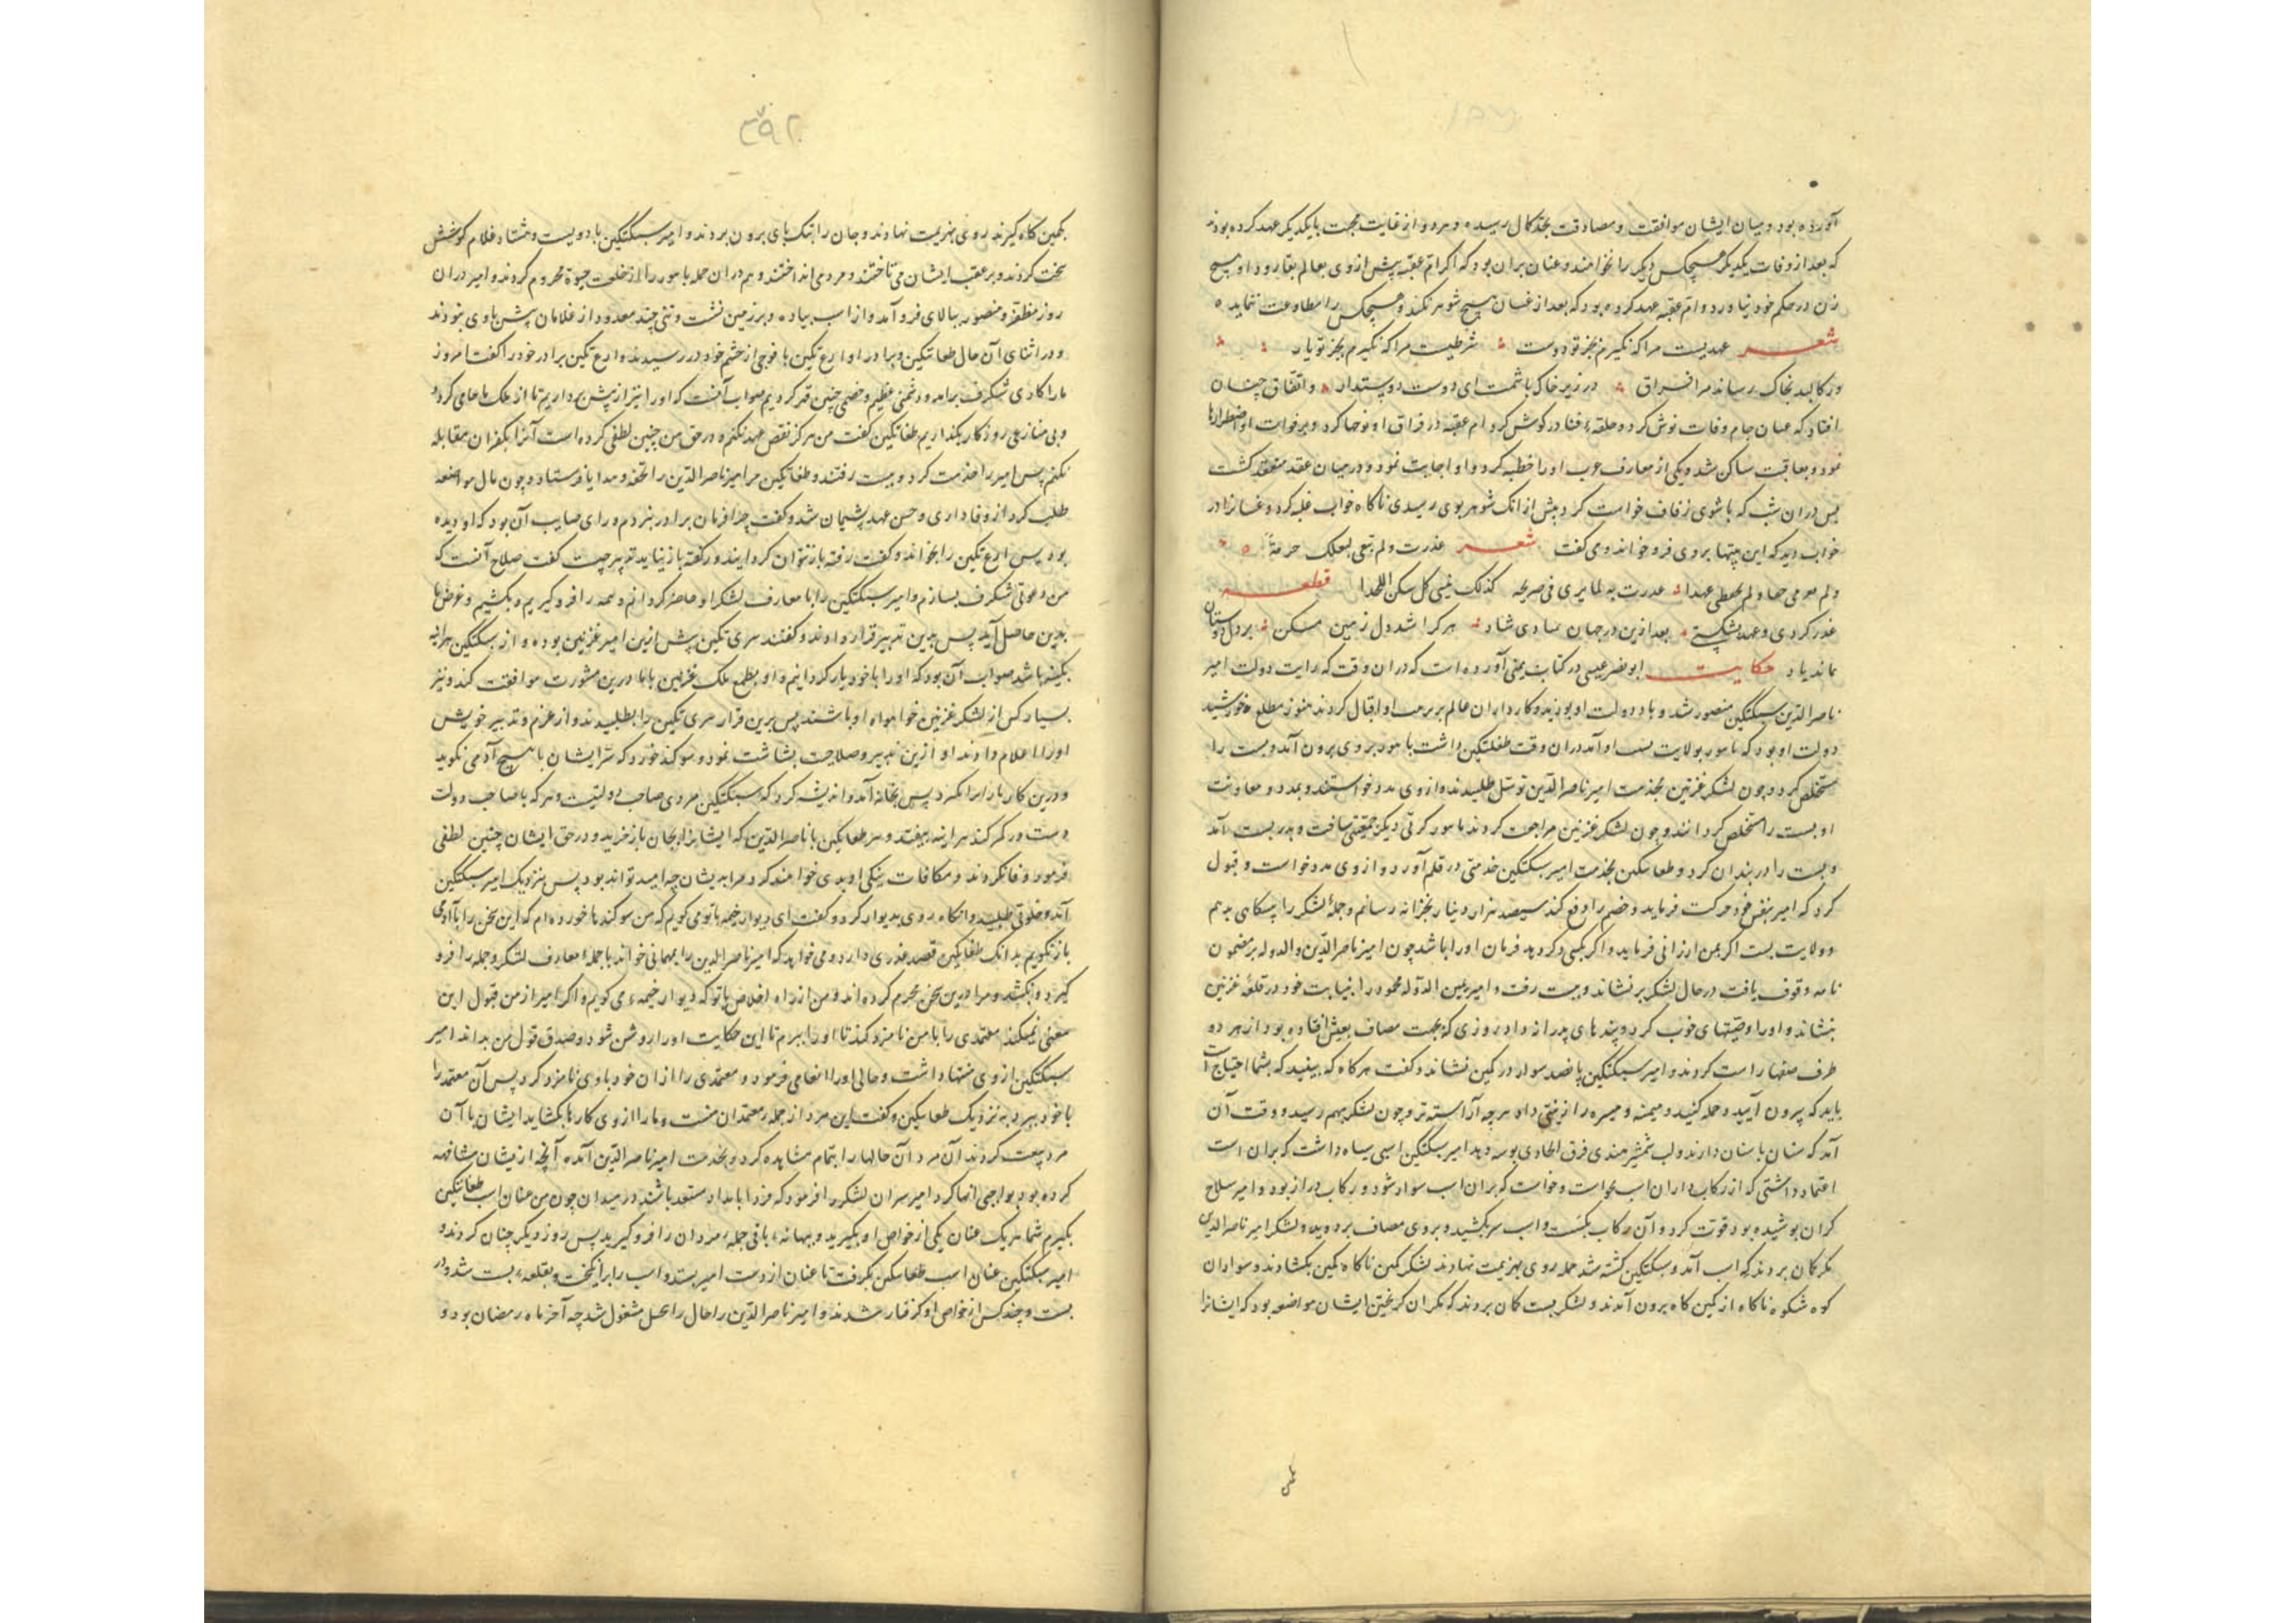 آورده بود و میان ایشان موافقت و مصادقت بحد کمال رسیده و هر دو از غایت محبت با یکدیگر عهد کرده بودند
که بعد از وفات یکدیگر هیچکس دیگر را نخواهند و غسان بران بود که اگر ام عقبه پیش از وی بعالم بقا رود او هیچ
زن در حکم خود نیاورد و ام عقبه عهد کرده بود که بعد از غسان هیچ شوهر نکند و هیچکس را مطاوعت ننماید
شعر عهدیست مرا که نگیرم بجز تو دوست شرطیست مرا که نگیرم بجز تو یار
ور کالبد بخاک رساند مرا فراق در زیر خاک باشمت ای دوست دوستدار و اتفاق چنان
افتاد که غسان جام وفات نوش کرد و حلقه فنا در گوش کرد ام عقبه در فراق او نوحها کرد و بر فوات او اضطرارها
نمود و بعاقبت ساکن شد و یکی از معارف عرب او را خطبه کرد و او اجابت نمود و در میان عقد منعقد گشت
پس دران شب که با شوی زفاف خواست کرد پیش از انک شوهر بوی رسیدی ناگاه خواب غلبه کرد و غسانرا در
خواب دید که این بیتها بروی فرو خواند و می گفت شعر غدرت ولم ترعی لبعلک حرمة
ولم حقا ولم تحفظی عهدا غدرت به لما یری فی ضریحه کذلک ینسی کل من سکن اللحدا قطعه
غدر کردی و عهد بشکستی بعد ازین در جهان مبادی شاد هر کرا شد دل زمین مسکن بر دل دوستان
نماند یاد حکایت ابو نصر عتبی در کتاب یمینی آورده است که دران وقت که رایت دولت امیر
ناصرالدین سبکتگین منصور شد و باد دولت او بوزید و کارداران عالم بر او اقبال کردند هنوز مطلع خورشید
دولت او بود که بولایت بست او آمد دران وقت طغاتکین داشت با بروی برون آمد و بست را
مستخلص کرد و چون لشکر غزنین بخدمت امیر ناصرالدین توسل طلبیدند و از وی مدد خواستند و بمدد و معاونت
او بست را مستخلص گردانند و چون لشکر غزنین مراجعت کردند کرتی دیگر جمعیتی ساخت و بدر بست آمد
و بست را در بندان کرد و طغاتکین بخدمت امیر سبکتگین خدمتی در قلم آورد و از وی مدد خواست و قبول
کرد که امیر بنفس خود حرکت فرماید و خصم را دفع کند سیصد هزار دینار بخزانه رسانم و جمله لشکر را بدهم
و ولایت بست اگر بمن ارزانی فرماید و اگر بکسی دگر دهد فرمان او را باشد چون امیر ناصرالدین والدوله بر مضمون
نامه وقوف یافت در حال لشکر بر نشاند و ببست رفت و امیر یمین الدوله محمود را بنیابت خود در قلعه غزنین
بنشاند و او را وصیتهای خوب کرد و پندهای پدرانه داد روزی که بجهت مصاف تعیین افتاده بود از هر دو
طرف صفها راست کردند و امیر سبکتگین پانصد سوار در کمین نشاند و گفت هر گاه که ببینید که بشما احتیاج است
باید که بیرون آیید و حمله کنید و میمنه و میسره را زینتی داد هرچه آراسته تر و چون لشکر بهم رسید و وقت آن
آمد که سنان با سنان دارند و لب شمشیر هندی فرق بوسه دهد امیر سبکتگین اسبی سیاه داشت که بران اسب
اعتماد داشتی که از رکاب داران اسب بخواست و خواست که بران اسب سوار شود و رکاب دراز بود و امیر سلاح
گران پوشیده بود قوت کرد و آن رکاب بگسست و اسب سر بکشید و بروی مصاف بر دوید و لشکر امیر ناصرالدین
مگر گمان بردند که اسب آمد و سبکتگین کشته شد جمله روی بهزیمت نهادند لشکر کمین ناگاه کمین بگشادند و سواران
کوه شکوه ناگاه از کمین گاه برون آمدند و لشکر بست گمان بردند که مگر ان گریختن ایشان مواضعه بود که ایشانرا
۳۹۲
بکمین گاه گیرند روی بهزیمت نهادند و جان را بتک پای برون بردند و امیر سبکتگین با دویست و هشتاد غلام کوشش
سخت کردند و بر عقب ایشان می تاختند و مرد می انداختند و هم دران حمله را از خلعت حیوة محروم کردند و امیر دران
روز مظفر و منصور ببالای فرود آمد و از اسب پیاده و بر زمین نشست و تنی چند معدود از غلامان پیش با وی نبودند
و در اثنای آن حال طغاتکین و برادر او ارغ تکین با فوجی از حشم خود در رسیدند و ارغ تکین برادر خود را گفت امروز
ما را کاری شگرف برامد و دشمنی عظیم و خصمی چنین قهر کردیم صواب آنست که او را نیز از پیش برداریم تا از ملک ما حامی گردد
و بی منازعی روزگار بگذاریم طغاتکین گفت من هرگز نقض عهد نکنم و در حق من چنین لطفی کرده است آنرا بکفران مقابله
نکنم پس امیر را خدمت کرد و ببست رفتند و طغاتکین مر امیر ناصرالدین را تحف و هدایا فرستاد و چون مال مواضعه
طلب کرد از وفاداری و حسن عهد پشیمان شد و گفت چرا فرمان برادر نبردم و رای صایب آن بود که او دیده
بود پس ارغ تکین را بخواند و گفت رفته باز نتوان گردانید و گفته باز نیاید تدبیر چیست گفت صلاح آنست که
من دعوتی شگرف بسازم و امیر سبکتگین را با معارف لشکر او حاضر گردانم و همه را فرو گیریم و بکشیم و غرض ما
بدین حاصل آید پس بدین تدبیر قرار دادند و گفتند سری تکین پیش ازین امیر غزنین بوده و از سبکتگین هراینه
بکینه باشد صواب آن بود که او را با خود یار گردانیم و او بطمع ملک غزنین با ما درین مشورت موافقت کند و نیز
بسیار کس از لشکر غزنین هواخواه او باشند پس برین قرار سری تکین را بطلبیدند و از عزم و تدبیر خویش
او را اعلام دادند او ازین تدبیر و صلاحت بشاشت نمود و سوگند خورد که سر ایشان با هیچ آدمی نگوید
و درین کار یار پس بخانه آمد و اندیشه کرد که سبکتگین مردی صاحب دولتیست و هر که با صاحب دولت
دست در کمر کند هراینه بیفتد و هر طغاتکین با ناصرالدین که ایشانرا بجان باز خرید و در حق ایشان چنین لطفی
فرمود وفا نکردند و مکافات نیکی او بدی خواهند کرد مرا بدیشان چه امید تواند بود پس بنزدیک امیر سبکتگین
آمد و خلوتی طلبید و آنگاه روی بدیوار کرد و گفت ای دیوار خیمه با تو می گویم که من سوگند خورده ام که این سخن را با آدمی
باز نگویم بدانک طغاتکین قصد غدری دارد و می خواهد که امیر ناصرالدین را بمهمانی خواند با جمله معارف لشکر و جمله را فرو
گیرد و بکشد و مرا درین سخن محرم کرده اند و من از راه اخلاص با تو که دیوار خیمه، می گویم و اگر امیر از من قبول این
معنی نمیکند معتمدی را با من نامزد کند تا او را ببرم تا این حکایت او را روشن شود و صدق قول من بداند امیر
سبکتگین از وی منتها داشت و حالی او را انعامی فرمود و معتمدی را از ان خود با وی نامزد کرد پس آن معتمد را
با خود ببرد بنزدیک طغاتکین و گفت این مرد از جمله معتمدان منست و ما را از وی کارها بگشاید ایشان با آن
مرد بیعت کردند آن مرد آن حالها را بتمام مشاهده کرد و بخدمت امیر ناصرالدین آمده آنچه از ایشان مشافهه
کرده بود انها کرد امیر سران لشکر را فرمود که فردا بامداد مستعد باشند در میدان چون من عنان اسب طغاتکین
بگیرم شما هر یک عنان یکی از خواص او بگیرید و بهانه، باقی جمله، مردان را فرو گیرید پس روز دیگر چنان کردند و
امیر سبکتگین عنان اسب طغاتکین بگرفت تا عنان از دست امیر بستد و اسب را برانگیخت و بقلعه، بست شد و در
بست و چند کس از خواص او گرفتار شدند و امیر ناصرالدین را حال مشغول شد چه آخر ماه رمضان بود و